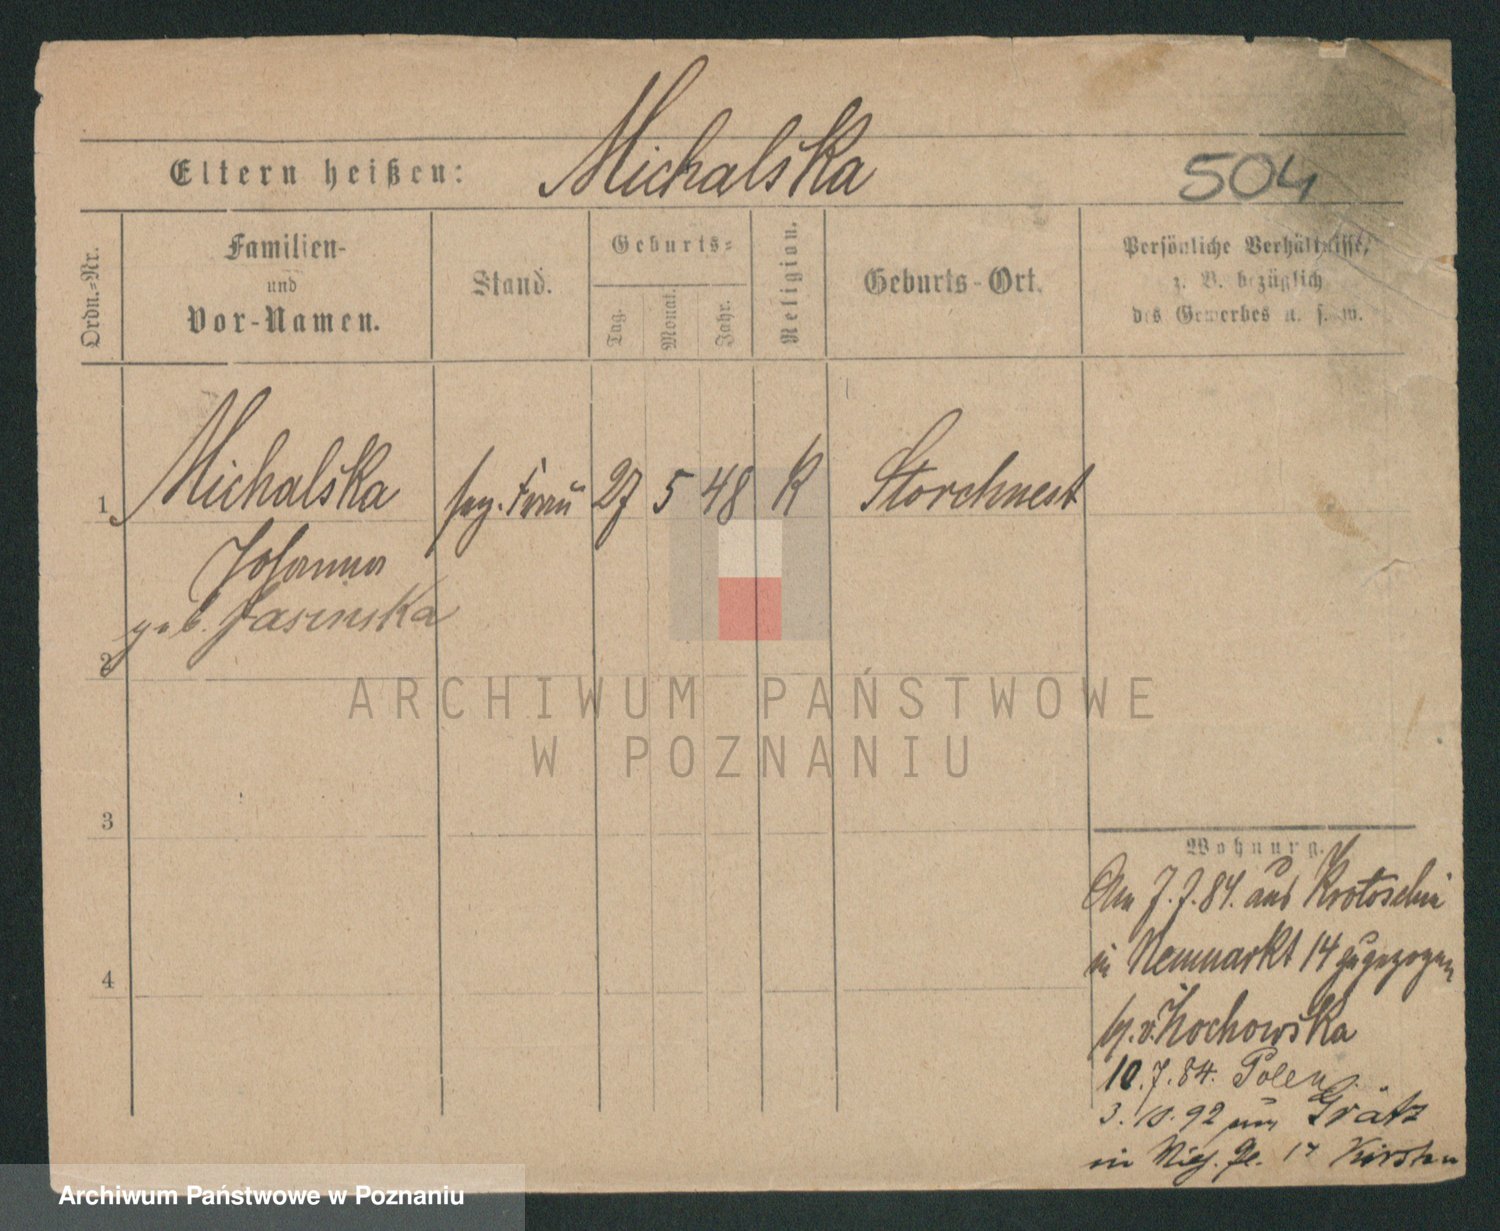 Eltern heißen: Michalska
504
Ordn.=Nr.
Familien-
und
Vor-Namen.
Stand.
Geburts=
Tag.
Monat.
Jahr.
Religion.
Geburts-Ort.
Persönliche Verhältnisse,
z. B. bezüglich
des Gewerbes u. s. w.
1 Michalska Frau 27 5 48 K Storchnest
Johanna
geb. Jasinska
2
3
4
ARCHIWUM PAŃSTWOWE
W POZNANIU
Wohnung.
Am 7.7.84. aus Krotoschin
in Neumarkt 14 zugezogen
v. Zochowska
10.7.84. Polen
3. 10. 92 Grätz
in 17 Kirsten
Archiwum Państwowe w Poznaniu